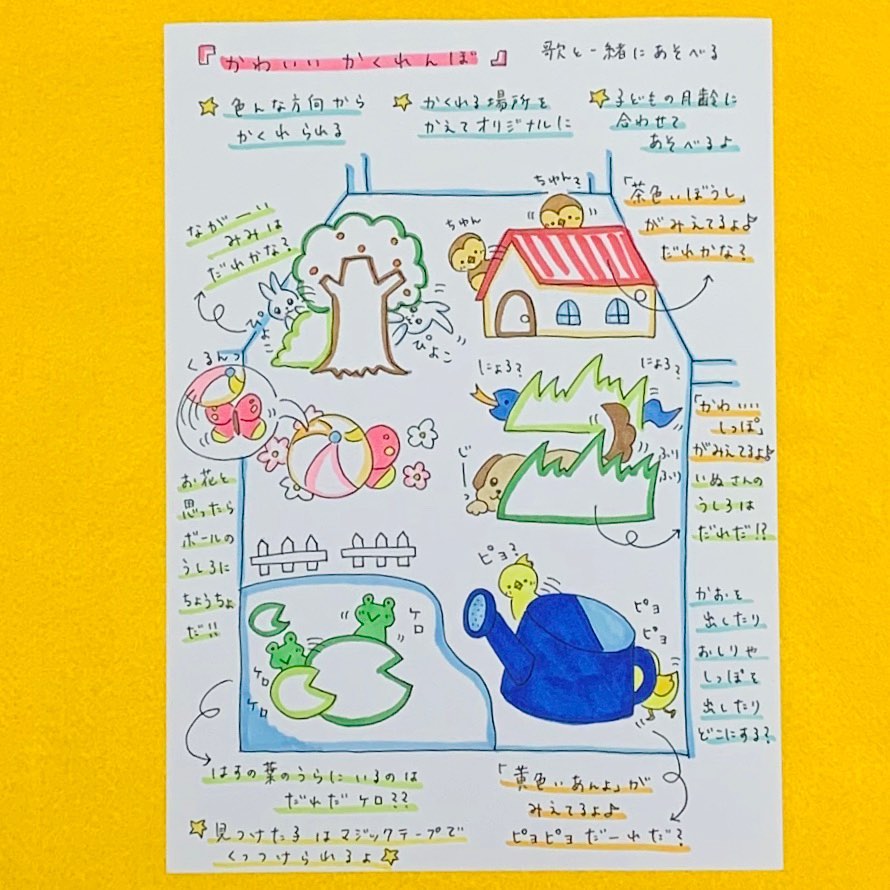 『かわいい かくれんぼ』 歌と一緒にあそべる
色んな方向から
かくれられる
かくれる場所を
かえてオリジナルに
子どもの月齢に
合わせて
あそべるよ
ちゅん?
ちゅん
「茶色いぼうし」
がみえてるよ♪
だれかな?
ながーい
みみは
だれかな?
ぴょこ
ぴょこ
くるんっ
にょろ?
にょろ?
じーっ
ふり
ふり
「かわいい
しっぽ」
がみえてるよ♪
いぬさんの
うしろは
だれだ!?
お花と
思ったら
ボールの
うしろに
ちょうちょ
だ!!
ピヨ?
ピヨ
ピヨ
ケロ
ケロ
ケロ
かおを
出したり
おしりや
しっぽを
出したり
どこにする?
はすの葉のうらにいるのは
だれだケロ??
「黄色いあんよ」が
みえてるよ♪
ピヨピヨだーれだ?
見つけた子はマジックテープで
くっつけられるよ